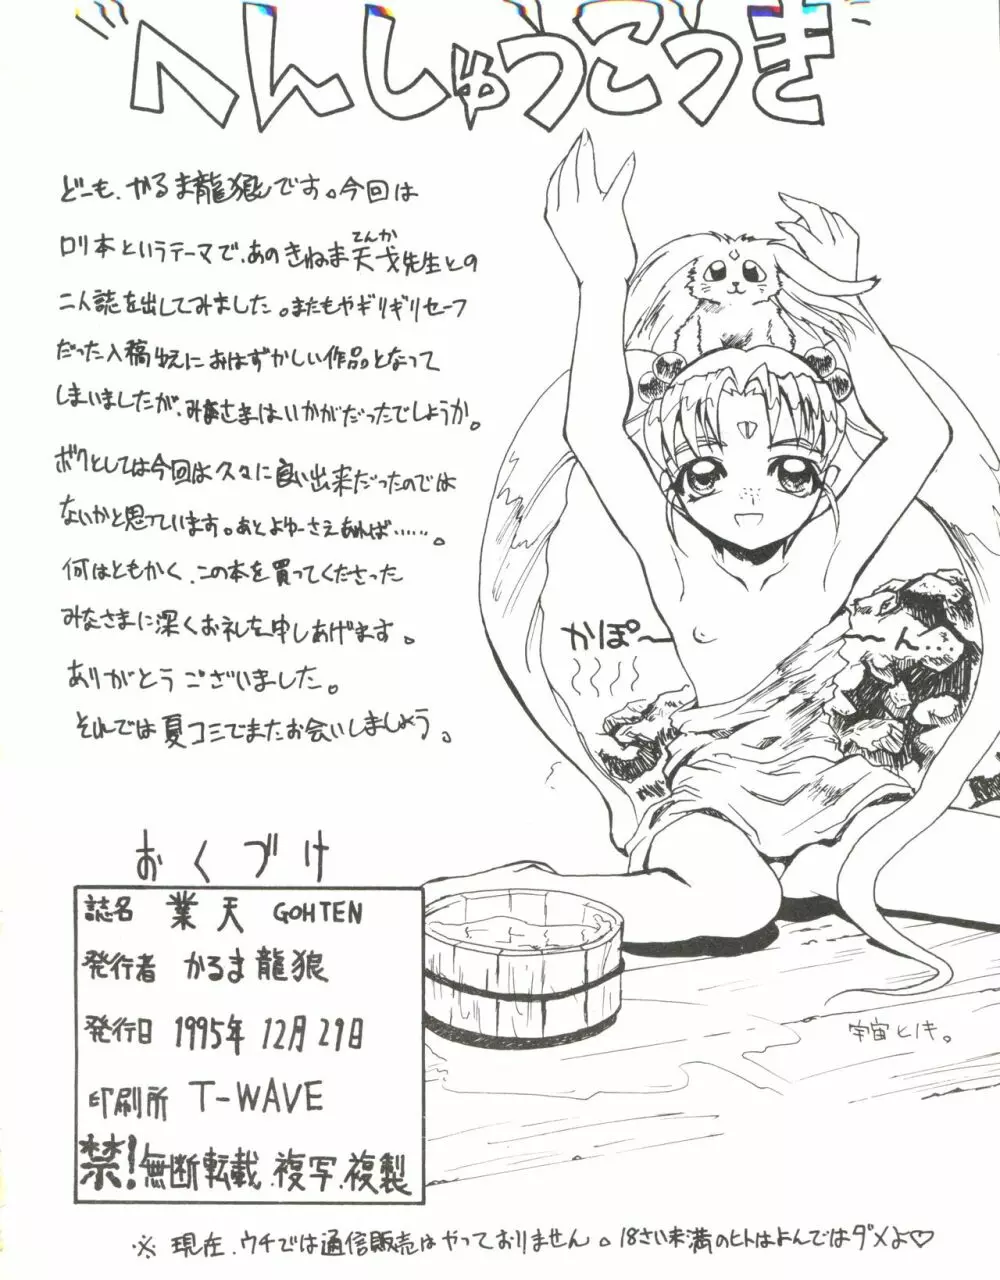 へんしゅうこうき
どーも、かるま龍狼です。今回は
ロリ本というテーマで、あのきねま天戈先生との
てんか
二人誌を出してみました。またもやギリギリセーフ
だった入稿ゆえにおはずかしい作品となって
しまいましたが、みなさまはいかがだったでしょうか。
ボクとしては今回は久々に良い出来だったのでは
ないかと思っています。あとよゆーさえあれば……。
何はともかく、この本を買ってくださった
みなさまに深くお礼を申しあげます。
ありがとうございました。
それでは夏コミでまたお会いしましょう。
かぽ〜〜ん…
おくづけ
誌名 業天 GOHTEN
発行者 かるま龍狼
発行日 1995年12月29日
印刷所 T-WAVE
禁!無断転載.複写.複製
宇宙ヒノキ。
※現在、ウチでは通信販売はやっておりません。18さい未満のヒトはよんではダメよ♡